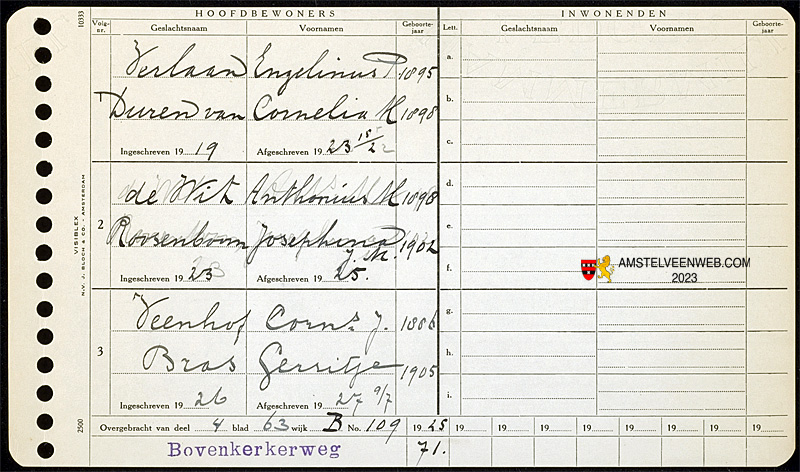 HOOFDBEWONERS INWONENDEN
Volg-nr. Geslachtsnaam Voornamen Geboorte-jaar Lett. Geslachtsnaam Voornamen Geboorte-jaar
10333
Verlaan Engelinus P. 1895 a.
Duren van Cornelia M 1898 b.
c.
Ingeschreven 19 19 Afgeschreven 19 23 15/2
de Wit Anthonius M 1898 d.
2 Roosenboom Josephina 1902 e.
J. M.
Ingeschreven 19 23 Afgeschreven 19 25. f.
AMSTELVEENWEB.COM
2023
VISIBLEX
N.V. J. BLOCH & CO. AMSTERDAM
Veenhof Corns. J. 1886 g.
3 Bras Gerritje 1905 h.
i.
Ingeschreven 19 26 Afgeschreven 19 27 9/7
2500
Overgebracht van deel 4 blad 63 wijk B No. 109 19 25 19 19 19 19 19 19 19
Bovenkerkerweg 71.